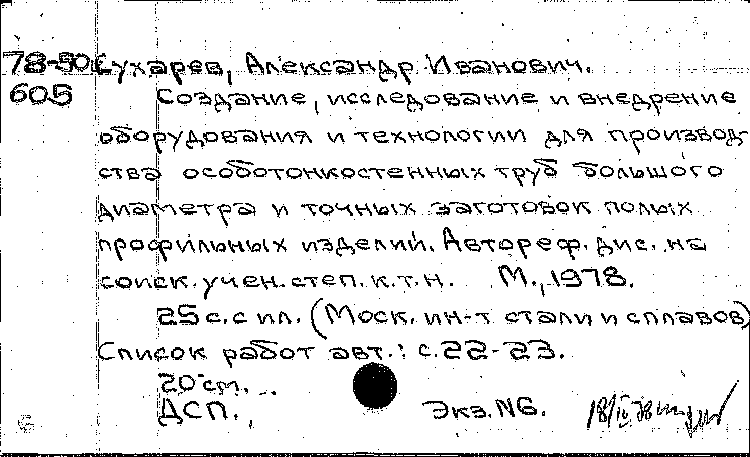 78-50 Сухарев, Александр Иванович.
605 Создание, исследование и внедрение
оборудования и технологии для производ-
ства особотонкостенных труб большого
диаметра и точных заготовок полых
профильных изделий. Автореф. дис. на
соиск. учен. степ. к.т.н. М., 1978.
25 с. с ил. (Моск. ин-т стали и сплавов)
Список работ авт.: с. 22-23.
20 см.
ДСП. Экз. N6.